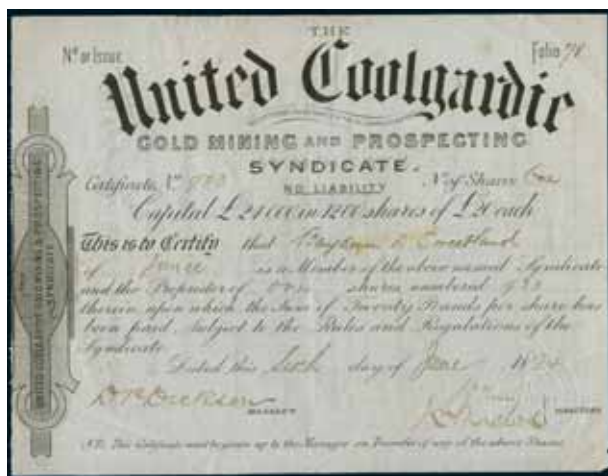 THE
No of Issue Folio 78
United Coolgardie
GOLD MINING AND PROSPECTING
SYNDICATE.
NO LIABILITY
Certificate No 983 No of Shares One
Capital £24000 in 1200 shares of £20 each
This is to Certify that
of Junee is a Member of the above named Syndicate
and the Proprietor of one shares numbered 983
therein upon which the Sum of Twenty Pounds per share has
been paid, subject to the Rules and Regulations of the
Syndicate
Dated this day of June 1894
MANAGER
N.B. This Certificate must be given up to the Manager on Transfer of any of the above Shares
THE
UNITED COOLGARDIE GOLD MINING & PROSPECTING
SYNDICATE